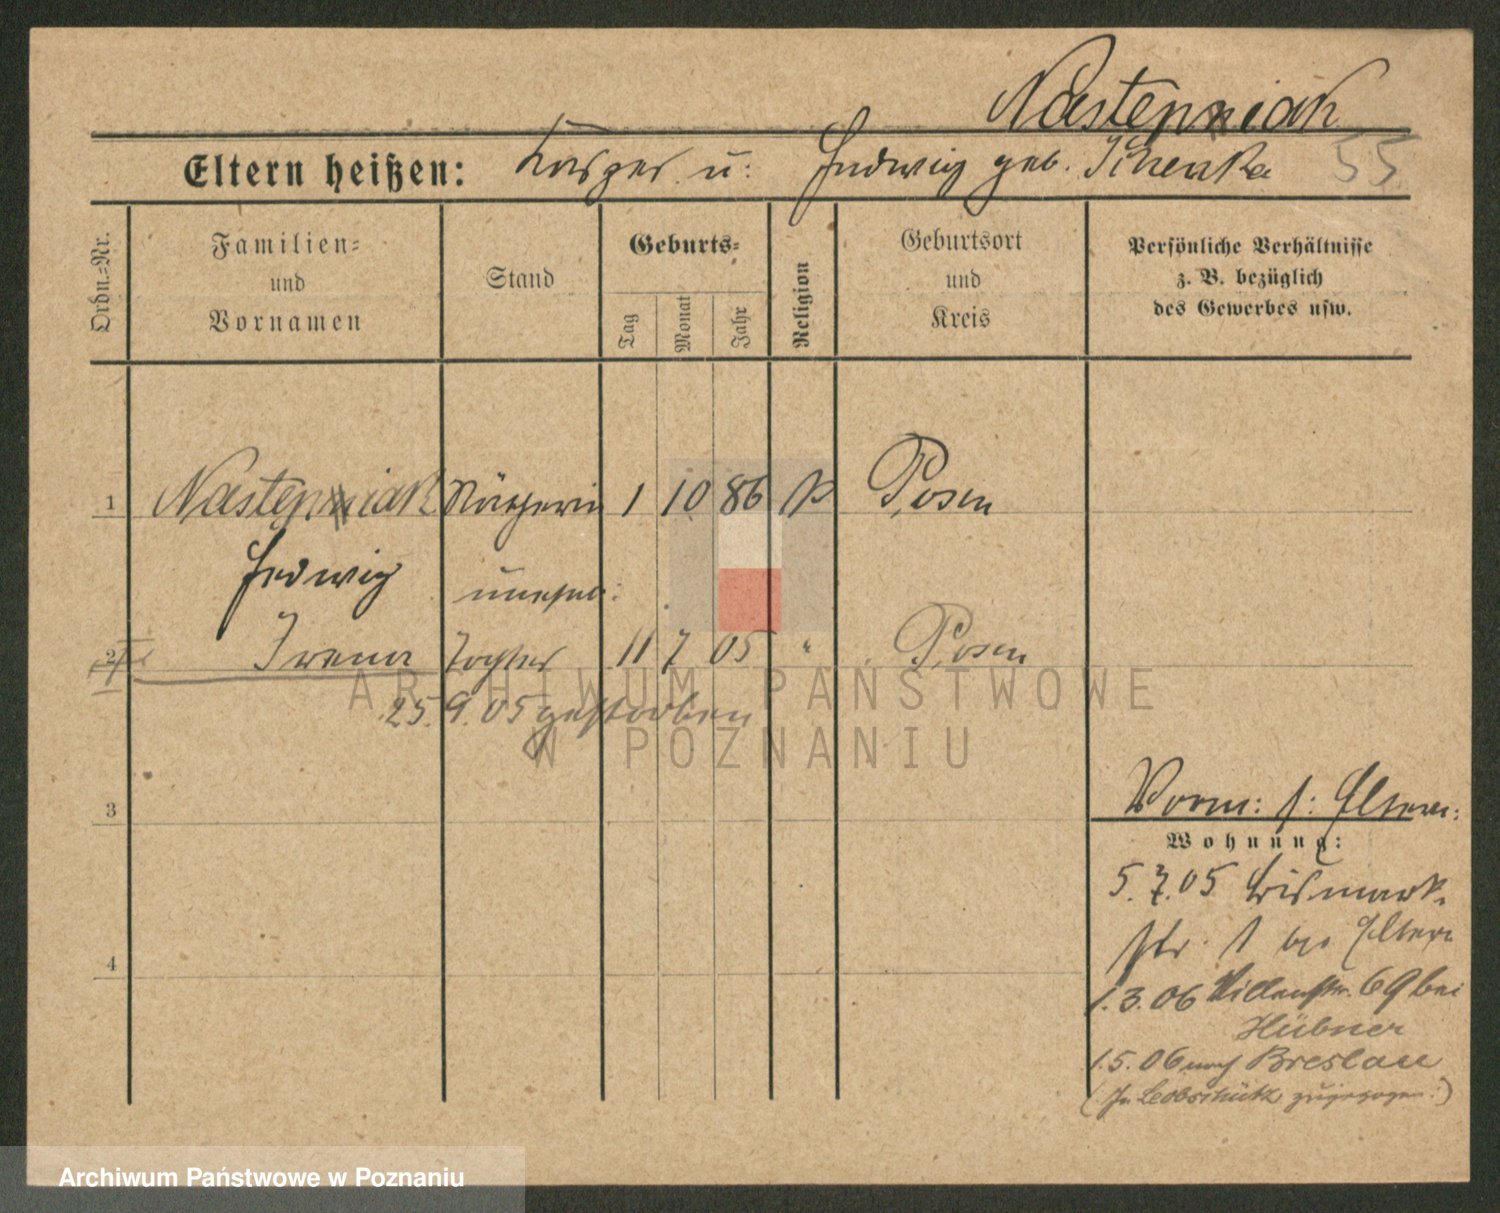 Nastempniak
Eltern heißen: Kasper u: Hedwig geb. Schenka 55
Ordn.=Nr.
Familien=
und
Vornamen
Stand
Geburts=
Tag
Monat
Jahr
Religion
Geburtsort
und
Kreis
Persönliche Verhältnisse
z. B. bezüglich
des Gewerbes usw.
1 Nastepniak Näherin 1 10 86 k Posen
Hedwig unehel:
2 Irena Tochter 11 7 05 " Posen
25.9.05 gestorben
3
4
Vorm: s: Eltern:
Wohnung:
5.7.05 Bismark-
str. 1 bei Eltern
1.3.06 Villenstr. 69 bei
Hübner
1.5.06 nach Breslau
(In Leobschütz zugezogen.)
ARCHIWUM PAŃSTWOWE
W POZNANIU
Archiwum Państwowe w Poznaniu